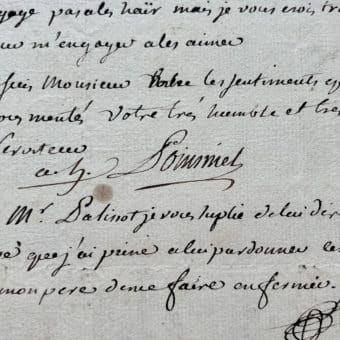 pas a les haïr mais je vous crois
m'engager a les aimer
suis Monsieur les sentiments
votre tres humble et tres
serviteur
a. h. Poinsinet
Mr. Palissot je vous suplie de lui
que j'ai peine a lui pardonner
mon pere de me faire enfermer.